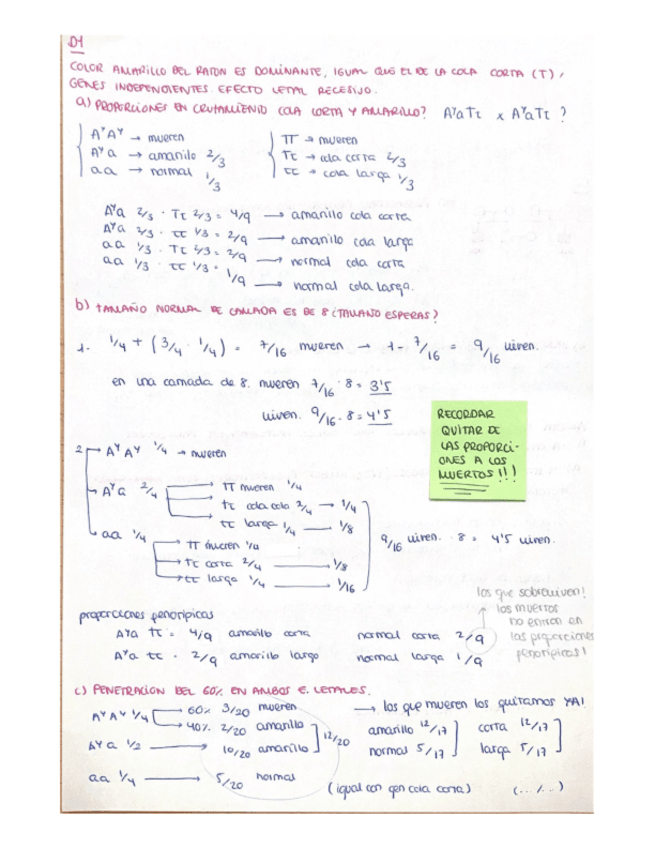 D1
COLOR AMARILLO DEL RATON ES DOMINANTE, IGUAL QUE EL DE LA COLA CORTA (T),
GENES INDEPENDIENTES. EFECTO LETAL RECESIVO.
a) PROPORCIONES EN CRUZAMIENTO COLA CORTA Y AMARILLO? AʸaTt x AʸaTt ?
AʸAʸ → mueren
Aʸa → amarillo 2/3
aa → normal 1/3
TT → mueren
Tt → cola corta 2/3
tt → cola larga 1/3
Aʸa 2/3 · Tt 2/3 = 4/9 → amarillo cola corta
Aʸa 2/3 · tt 1/3 = 2/9 → amarillo cola larga
aa 1/3 · Tt 2/3 = 2/9 → normal cola corta
aa 1/3 · tt 1/3 = 1/9 → normal cola larga.
b) TAMAÑO NORMAL DE CAMADA ES DE 8 ¿TAMAÑO ESPERAS?
1. 1/4 + (3/4 · 1/4) = 7/16 mueren → 1 - 7/16 = 9/16 viven.
en una camada de 8. mueren 7/16 · 8 = 3'5
viven. 9/16 · 8 = 4'5
RECORDAR
QUITAR DE
LAS PROPORCI-
ONES A LOS
MUERTOS!!!
2 → AʸAʸ 1/4 → mueren
Aʸa 2/4
TT mueren 1/4
tt cola cola 2/4 → 1/4
tt larga 1/4 → 1/8
aa 1/4
TT mueren 1/4
tt corta 2/4 → 1/8
tt larga 1/4 → 1/16
9/16 viven. · 8 = 4'5 viven.
los que sobreviven!
los muertos
no entran en
las proporciones
fenotípicas!
proporciones fenotípicas
Aʸa Tt = 4/9 amarillo corta normal corta 2/9
Aʸa tt = 2/9 amarillo largo normal larga 1/9
c) PENETRACION DEL 60% EN AMBOS E. LETALES.
AʸAʸ 1/4 → 60% 3/20 mueren → los que mueren los quitamos YA!
→ 40% 2/20 amarillo
Aʸa 1/2 → 10/20 amarillo ] 12/20
aa 1/4 → 5/20 normal
amarillo 12/17 corta 12/17
normal 5/17 larga 5/17
(igual con gen cola corta) (.../...)